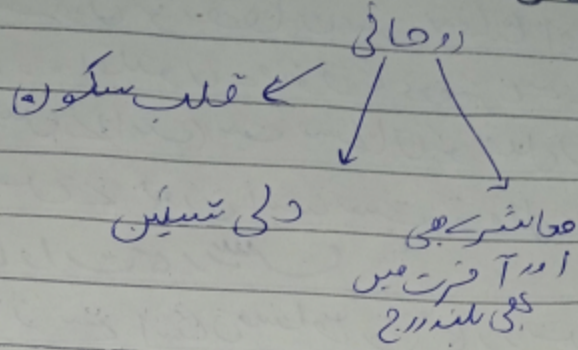 روحانی
قلب سکون
دلی تسکین
معاشرے بھی
اور آخرت میں
بھی بلند درج